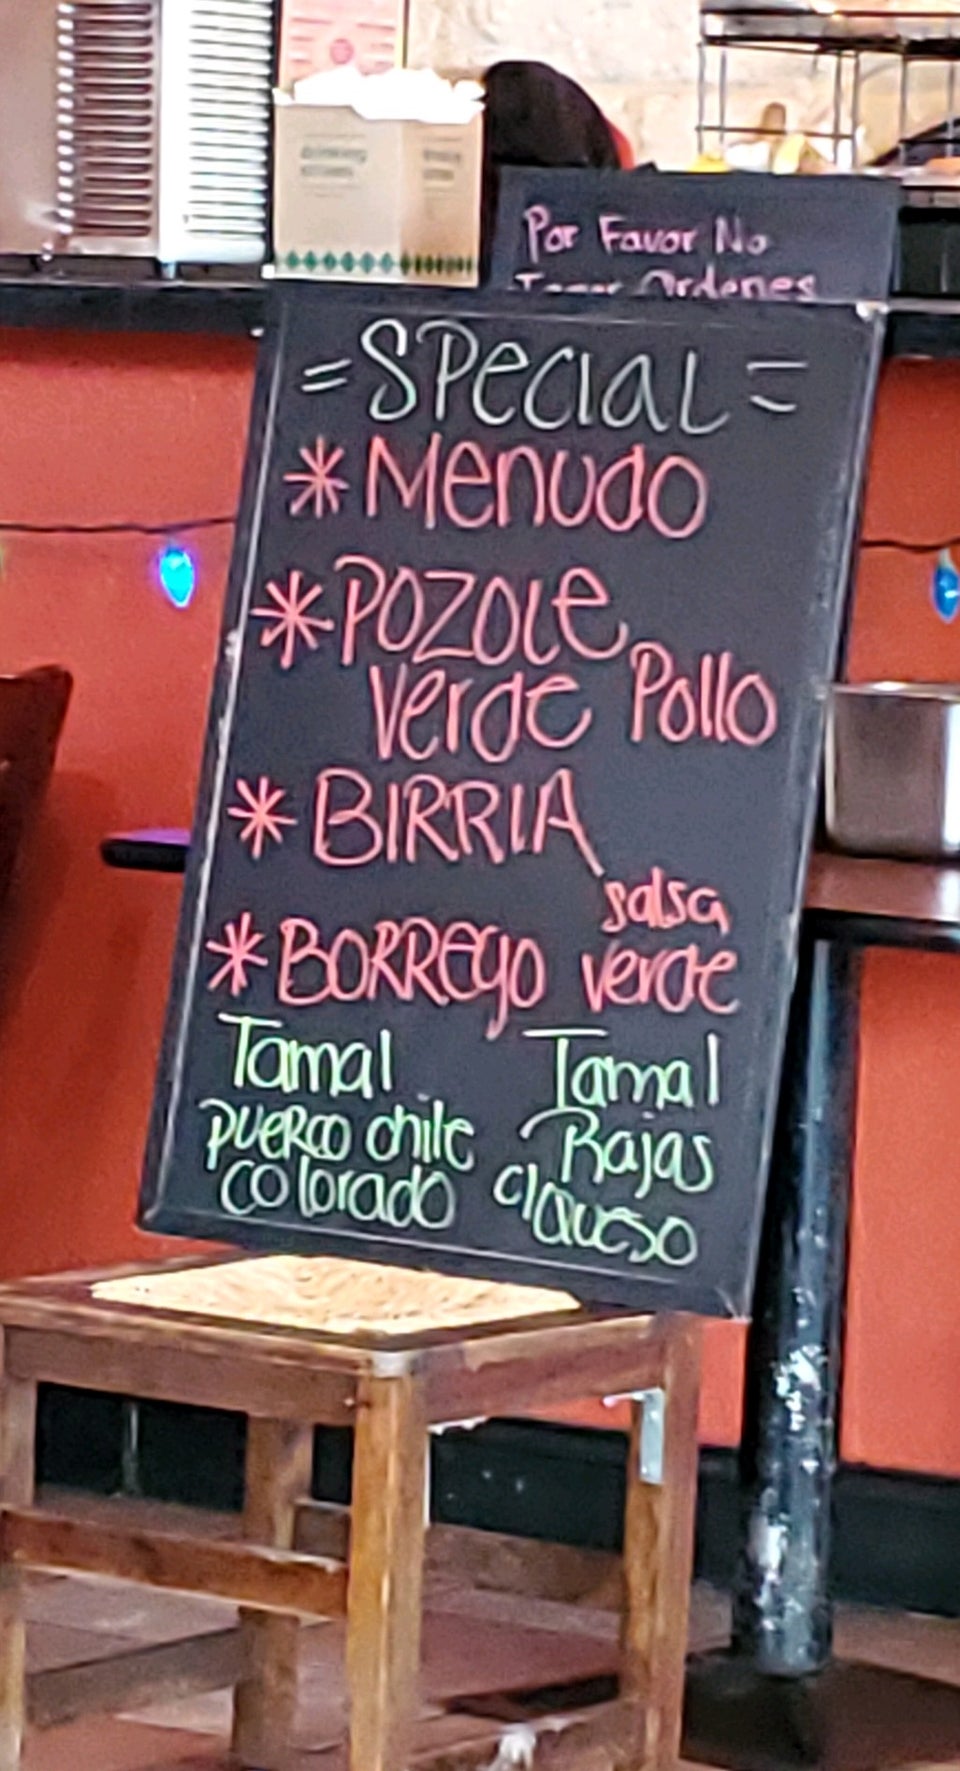 Por Favor No
Tomar Ordenes
= SPecial =
* Menudo
* POZOLE
verde Pollo
* BIRRIA
salsa
* BORREGO verde
Tamal
puerco chile
colorado
Tamal
Rajas
c/queso